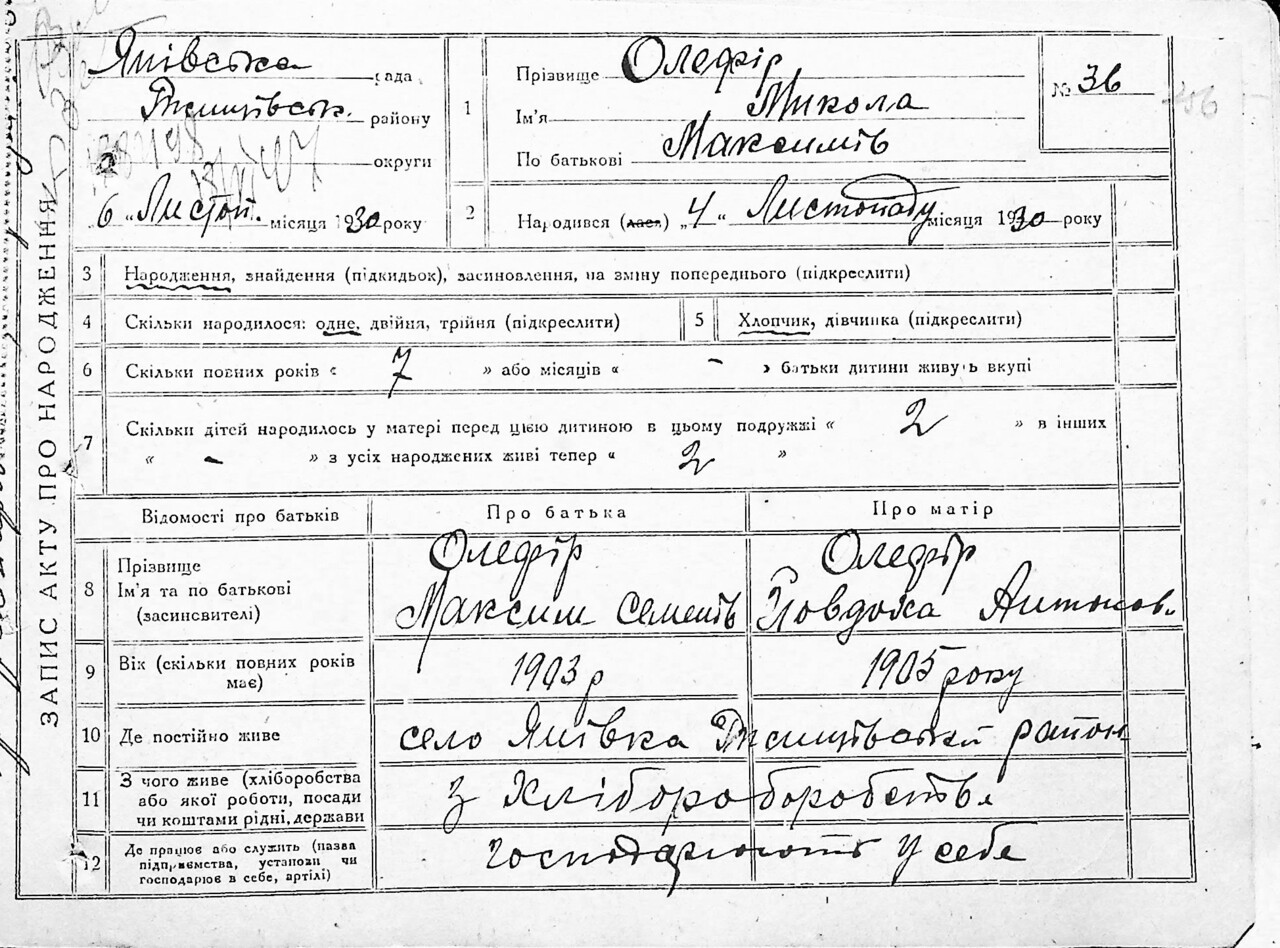 ЗАПИС АКТУ ПРО НАРОДЖЕННЯ
Янівська рада
району
округи
„6 „ Листоп. місяця 1930 року
1
Прізвище Олефір
Ім'я Микола
По батькові Максимів
№ 36
2
Народився (лась) „4 „ Листопаду місяця 1930 року
3 Народження, знайдення (підкидьок), засиновлення, на зміну попереднього (підкреслити)
4 Скільки народилося: одне, двійня, трійня (підкреслити)
5 Хлопчик, дівчинка (підкреслити)
6 Скільки повних років « 7 » або місяців « - » батьки дитини живуть вкупі
7 Скільки дітей народилось у матері перед цією дитиною в цьому подружжі « 2 » в інших
« - » з усіх народжених живі тепер « 2 »
Відомості про батьків
Про батька
Про матір
8 Прізвище
Ім'я та по батькові
(засинсвителі)
Олефір
Максим Семенів
Олефір
Явдоха Антонов.
9 Вік (скільки повних років
має)
1903 р
1905 року
10 Де постійно живе
село Янівка район
11 З чого живе (хліборобства
або якої роботи, посади
чи коштами рідні, держави
з Хлібороборобств.
12 Де працює або служить (назва
підприємства, установи чи
господарює в себе, артілі)
господарюють у себе